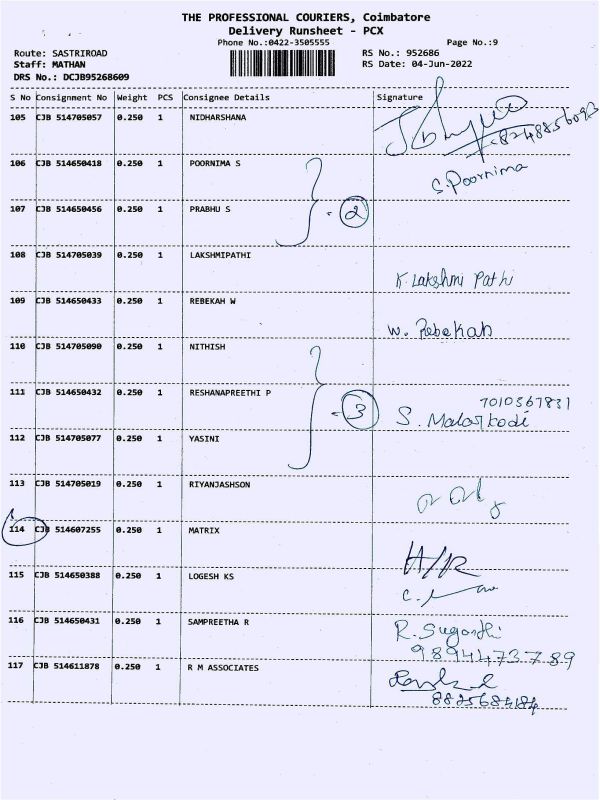 THE PROFESSIONAL COURIERS, Coimbatore
Delivery Runsheet - PCX
Phone No.:0422-3505555
Page No.:9
Route: SASTRIROAD
RS No.: 952686
Staff: MATHAN
RS Date: 04-Jun-2022
DRS No.: DCJB95268609
S No Consignment No Weight PCS Consignee Details Signature
105 CJB 514705057 0.250 1 NIDHARSHANA
8248856093
106 CJB 514650418 0.250 1 POORNIMA S S. Poornima
107 CJB 514650456 0.250 1 PRABHU S
2
108 CJB 514705039 0.250 1 LAKSHMIPATHI
K. Lakshmi Pathi
109 CJB 514650433 0.250 1 REBEKAH W
W. Rebekah
110 CJB 514705090 0.250 1 NITHISH
111 CJB 514650432 0.250 1 RESHANAPREETHI P
7010367831
3 S. Malarkodi
112 CJB 514705077 0.250 1 YASINI
113 CJB 514705019 0.250 1 RIYANJASHSON
114 CJB 514607255 0.250 1 MATRIX
H/R
115 CJB 514650388 0.250 1 LOGESH KS
116 CJB 514650431 0.250 1 SAMPREETHA R
R. Sugandhi
9894473789
117 CJB 514611878 0.250 1 R M ASSOCIATES
8825684184